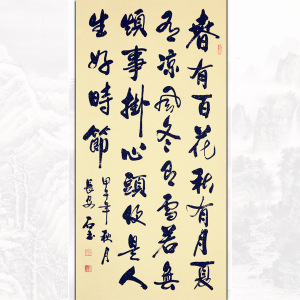 春有百花秋有月夏
有凉風冬有雪若無
煩事掛心頭便是人
生好時節
甲午年秋月
長安石